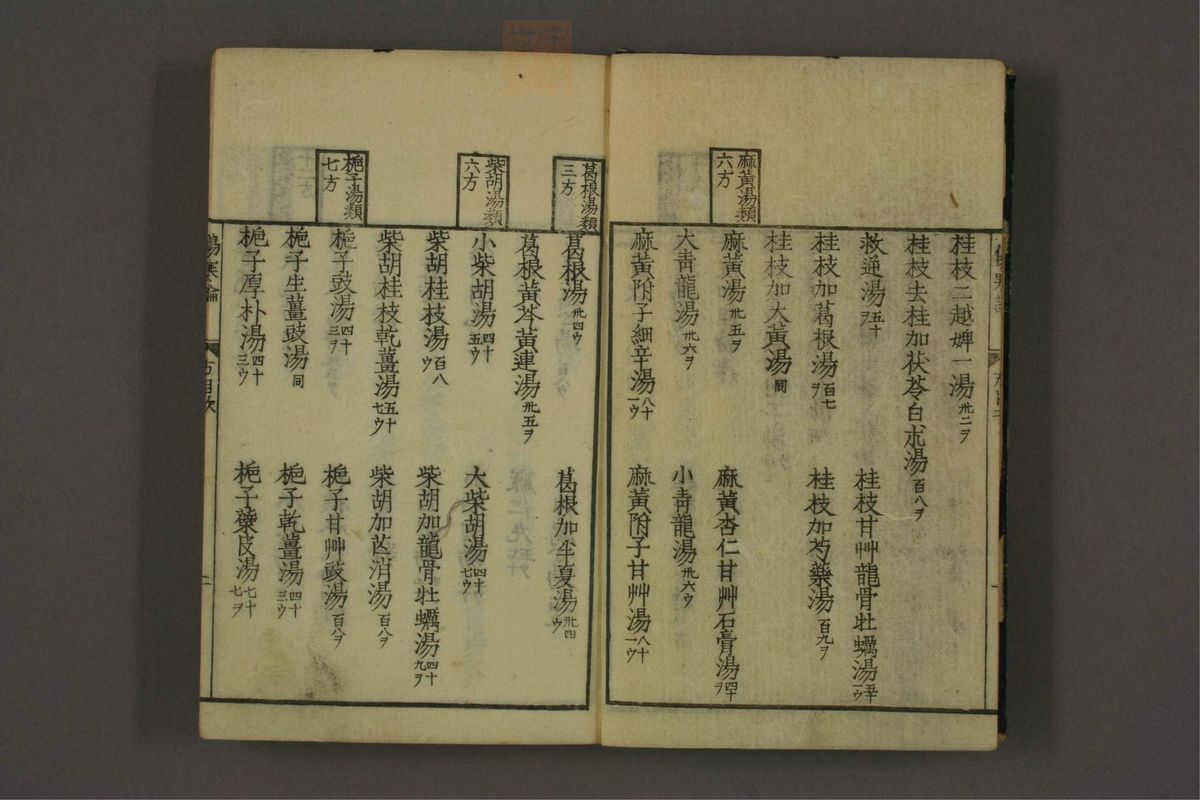 桂枝二越婢一湯 卅二ヲ
桂枝去桂加茯苓白朮湯 百八ヲ
救逆湯 五十
桂枝甘艸龍骨牡蠣湯 五十一ウ
桂枝加葛根湯 百七ヲ
桂枝加芍藥湯 百九ヲ
桂枝加大黃湯 同
麻黃湯類
六方
麻黃湯 卅五ヲ
麻黃杏仁甘艸石膏湯 四十ヲ
大青龍湯 卅六ヲ
小青龍湯 卅六ウ
麻黃附子細辛湯 八十一ウ
麻黃附子甘艸湯 八十一ウ
葛根湯類
三方
葛根湯 卅四ウ
葛根加半夏湯 卅四ウ
葛根黃芩黃連湯 卅五ヲ
柴胡湯類
六方
小柴胡湯 四十五ウ
大柴胡湯 四十七ウ
柴胡桂枝湯 百八ウ
柴胡加龍骨牡蠣湯 四十九ヲ
柴胡桂枝乾薑湯 五十七ウ
柴胡加芒消湯 百八ヲ
梔子湯類
七方
梔子豉湯 四十三ヲ
梔子甘艸豉湯 百八ヲ
梔子生薑豉湯 同
梔子乾薑湯 四十三ウ
梔子厚朴湯 四十三ウ
梔子蘗皮湯 七十七ヲ
傷寒論 方目次 二